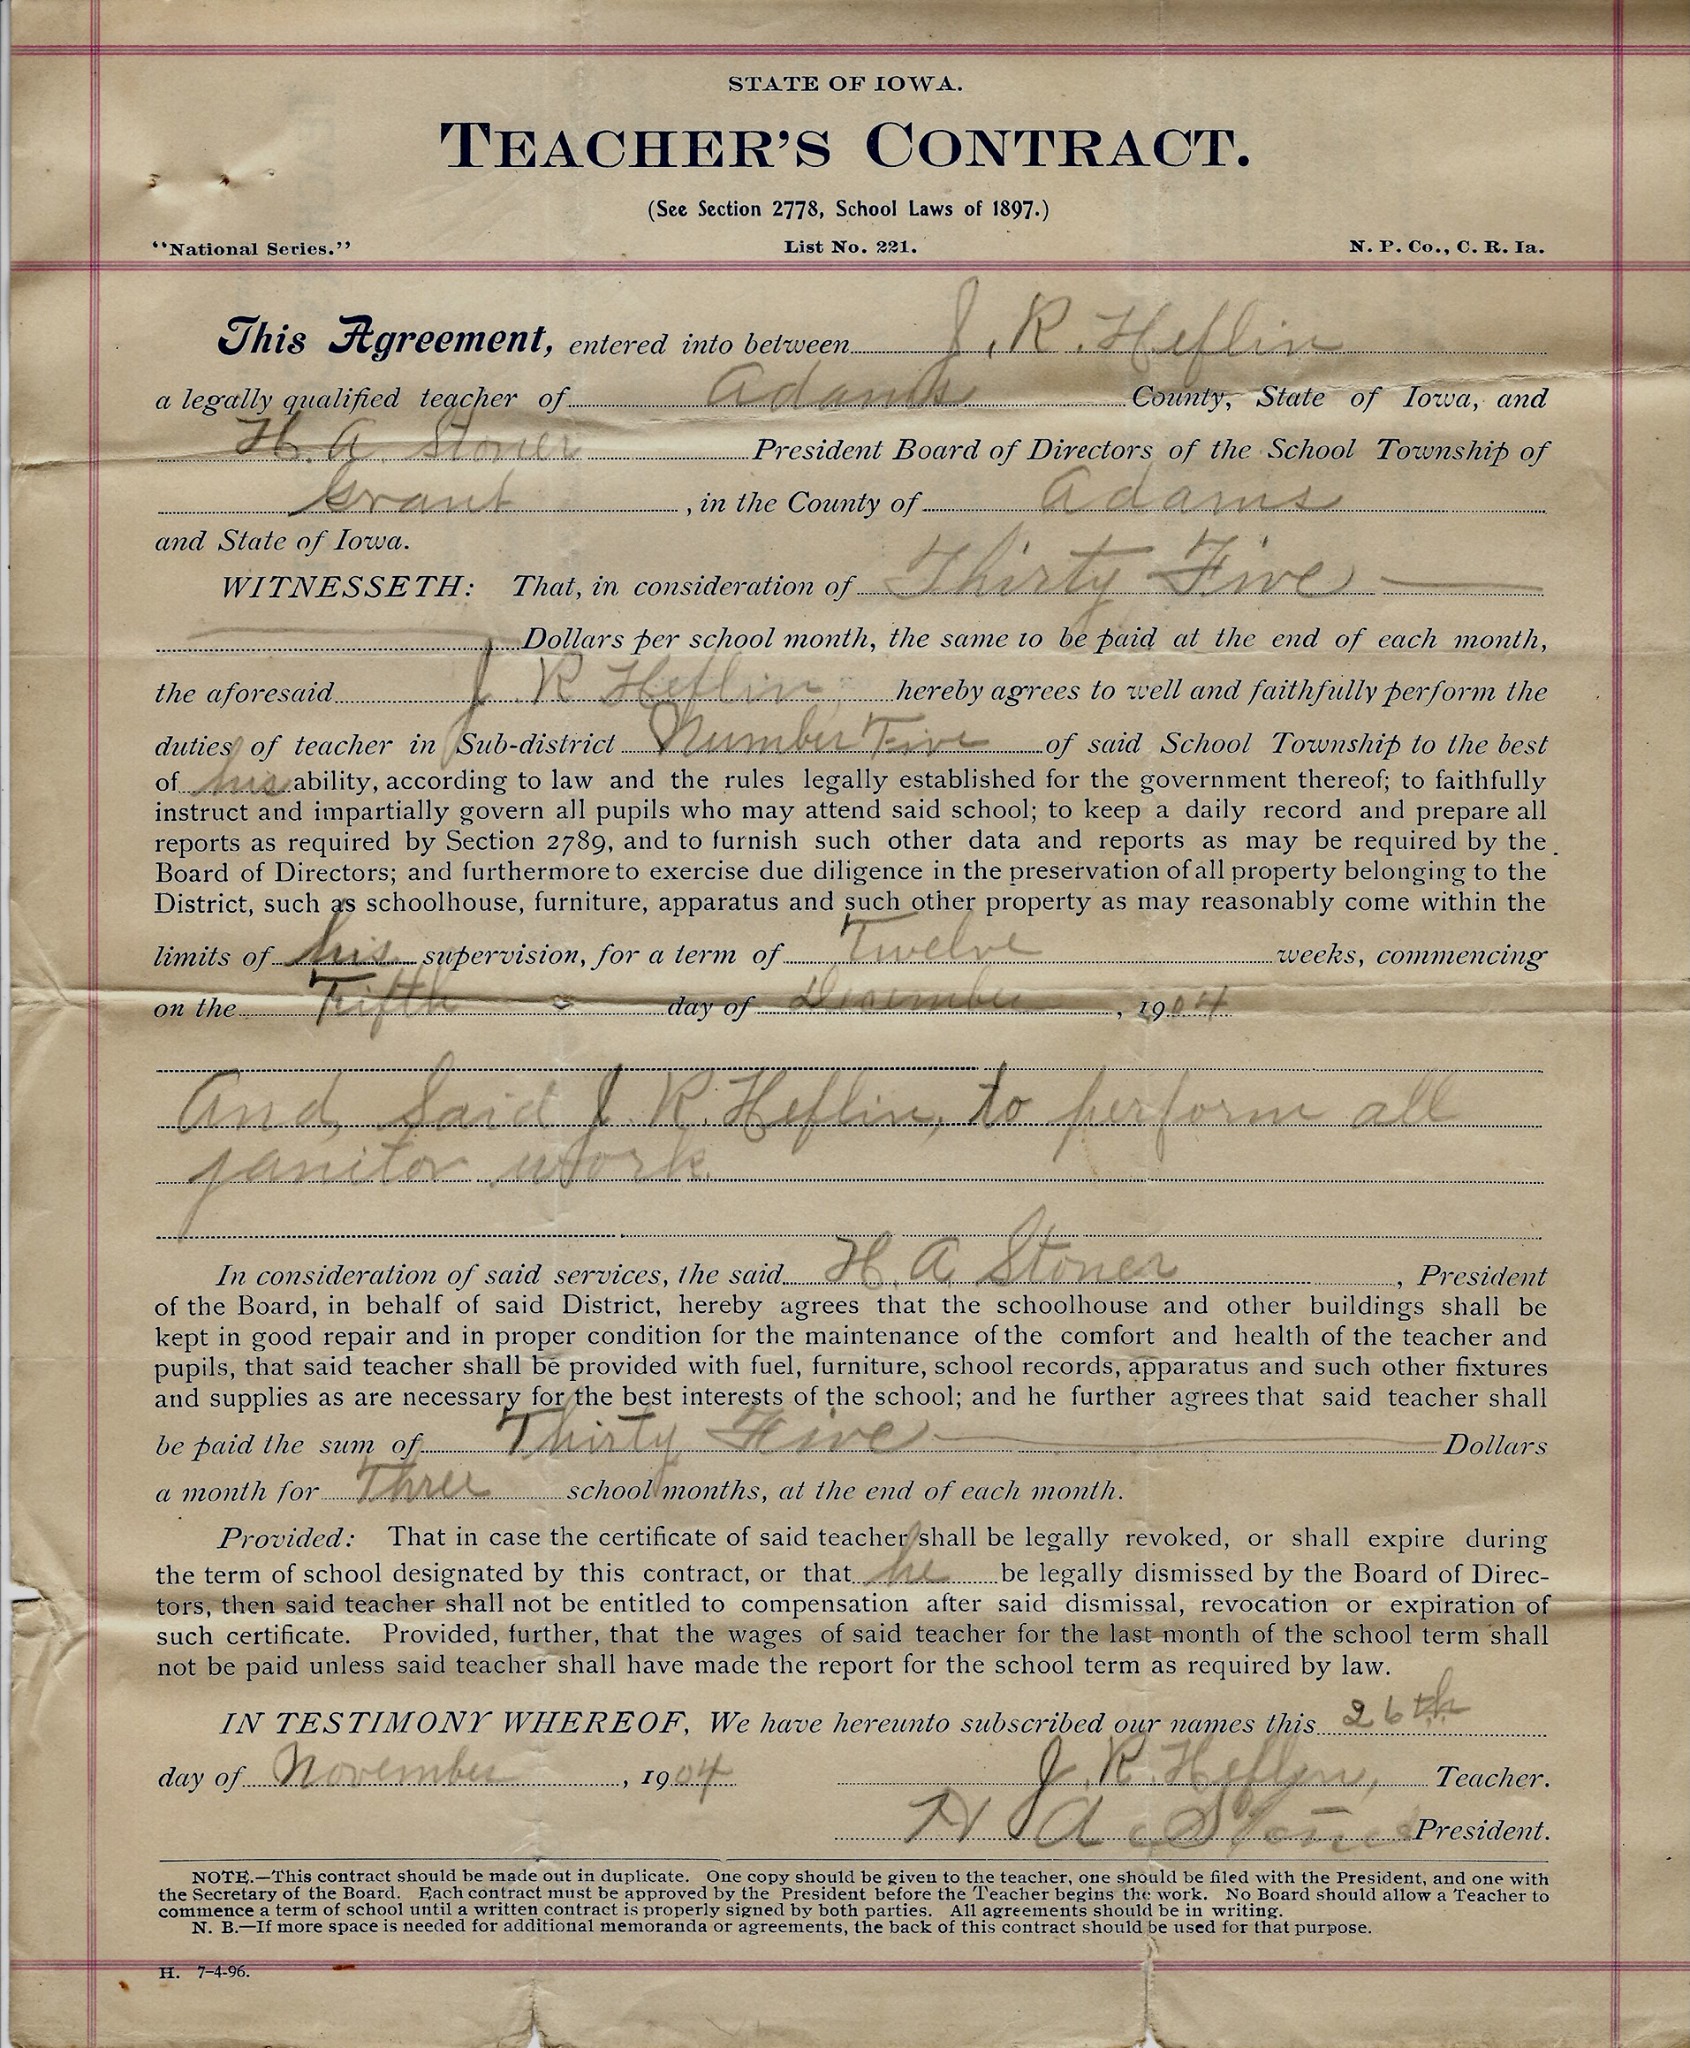 STATE OF IOWA.
TEACHER'S CONTRACT.
(See Section 2778, School Laws of 1897.)
"National Series." List No. 221. N. P. Co., C. R. Ia.
This Agreement, entered into between J. R. Heflin
a legally qualified teacher of Adams County, State of Iowa, and
H. A. Stoner President Board of Directors of the School Township of
Grant, in the County of Adams
and State of Iowa.
WITNESSETH: That, in consideration of Thirty Five
Dollars per school month, the same to be paid at the end of each month,
the aforesaid J. R Heflin, hereby agrees to well and faithfully perform the
duties of teacher in Sub-district Number Five of said School Township to the best
of his ability, according to law and the rules legally established for the government thereof; to faithfully
instruct and impartially govern all pupils who may attend said school; to keep a daily record and prepare all
reports as required by Section 2789, and to furnish such other data and reports as may be required by the
Board of Directors; and furthermore to exercise due diligence in the preservation of all property belonging to the
District, such as schoolhouse, furniture, apparatus and such other property as may reasonably come within the
limits of his supervision, for a term of Twelve weeks, commencing
on the Fifth day of December, 1904
And, Said J. R. Heflin, to perform all
janitor work.
In consideration of said services, the said H. A. Stoner, President
of the Board, in behalf of said District, hereby agrees that the schoolhouse and other buildings shall be
kept in good repair and in proper condition for the maintenance of the comfort and health of the teacher and
pupils, that said teacher shall be provided with fuel, furniture, school records, apparatus and such other fixtures
and supplies as are necessary for the best interests of the school; and he further agrees that said teacher shall
be paid the sum of Thirty Five Dollars
a month for Three school months, at the end of each month.
Provided: That in case the certificate of said teacher shall be legally revoked, or shall expire during
the term of school designated by this contract, or that he be legally dismissed by the Board of Direc-
tors, then said teacher shall not be entitled to compensation after said dismissal, revocation or expiration of
such certificate. Provided, further, that the wages of said teacher for the last month of the school term shall
not be paid unless said teacher shall have made the report for the school term as required by law.
IN TESTIMONY WHEREOF, We have hereunto subscribed our names this 26th
day of November, 1904 J. R. Heflin, Teacher.
H A Stoner President.
NOTE.—This contract should be made out in duplicate. One copy should be given to the teacher, one should be filed with the President, and one with
the Secretary of the Board. Each contract must be approved by the President before the Teacher begins the work. No Board should allow a Teacher to
commence a term of school until a written contract is properly signed by both parties. All agreements should be in writing.
N. B.—If more space is needed for additional memoranda or agreements, the back of this contract should be used for that purpose.
H. 7-4-96.